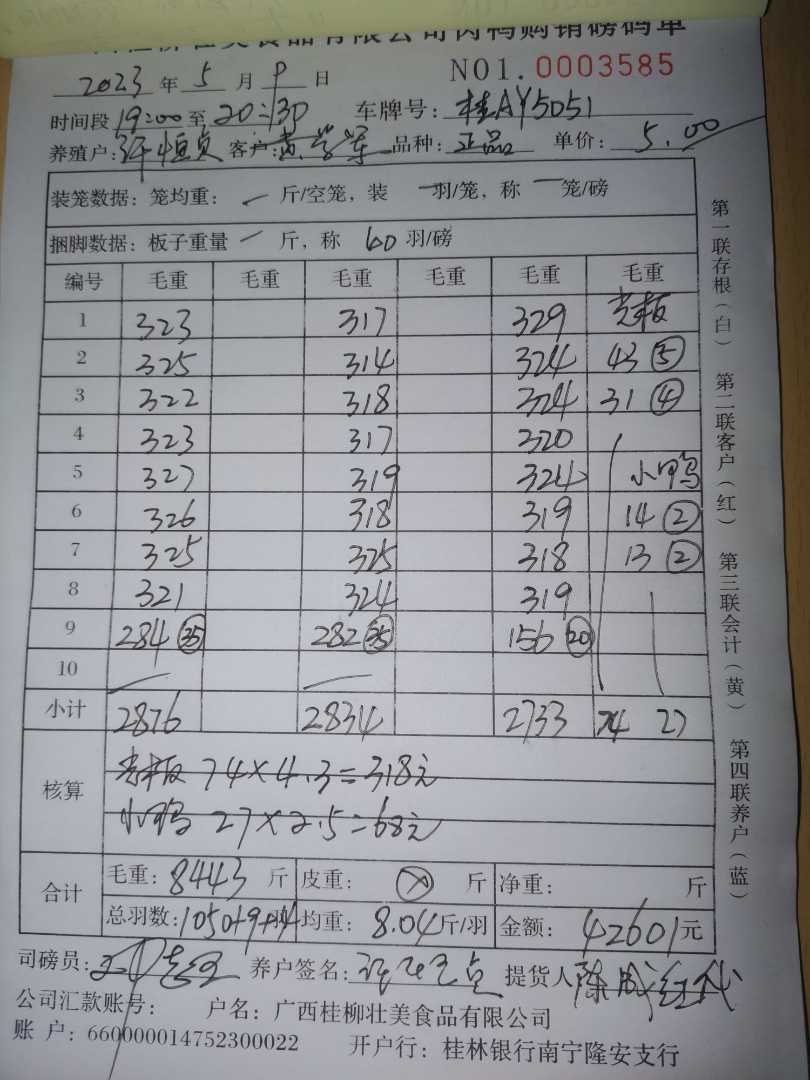 壮美食品有限公司肉鸭购销磅码单
2023年5月9日 NO1.0003585
时间段19:00至20:30 车牌号:桂AY5051
养殖户:许恒贞 客户: 品种:正品 单价:5.00
装笼数据:笼均重: 一 斤/空笼,装 一羽/笼,称 一笼/磅
捆脚数据:板子重量 一 斤,称 60羽/磅
编号 毛重 毛重 毛重 毛重 毛重 毛重
1 323 317 329 光板
2 325 314 324 43⑤
3 322 318 324 31④
4 323 317 320
5 327 319 324 小鸭
6 326 318 319 14②
7 325 325 318 13②
8 321 324 319
9 284㉟ 282㉟ 156⑳
10
小计 2876 2834 2733 74 27
核算 光板 74×4.3=318元
小鸭 27×2.5=68元
合计 毛重:8443斤 皮重:⊗斤 净重: 斤
总羽数:1050+9+4 均重:8.04斤/羽 金额:42601元
司磅员: 养户签名: 提货人
公司汇款账号: 户名:广西桂柳壮美食品有限公司
账 户:660000014752300022 开户行:桂林银行南宁隆安支行
第一联存根(白) 第二联客户(红) 第三联会计(黄) 第四联养户(蓝)